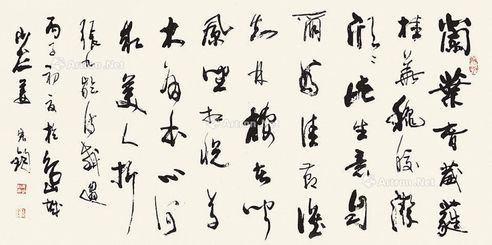 蘭葉春葳蕤
桂華秋皎潔
欣々此生意自
爾為佳節誰
知林棲者聞
風坐相悅草
木有本心何
求美人折
張九齡詩感遇
丙子初夏於城
Artron.Net